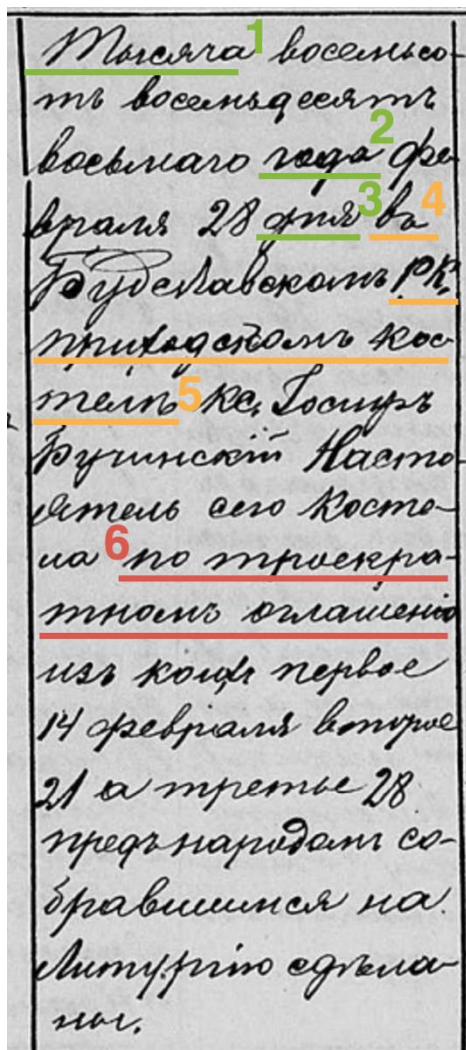 Тысяча 1 восемьсо-
тъ восемьдесятъ
восьмаго года 2 фе
враля 28 дня 3 въ 4
Будславскомъ РК.
приходскомъ кос
телѣ 5 Кс. Іосифъ
Ручинскій Насто-
ятель сего Косте-
ла 6 по троекра-
тномъ оглашеніи
изъ коихъ первое
14 февраля второе
21 а третье 28
предъ народомъ со-
бравшимся на
Литургію сдѣла-
ны.